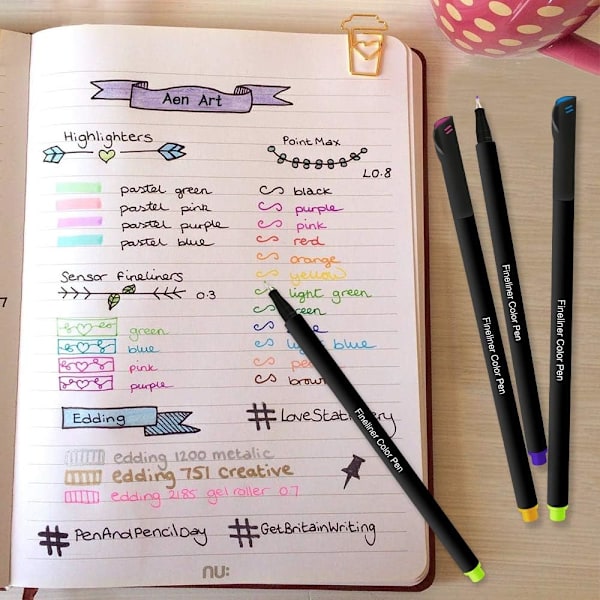 Aen Art
Highlighters
pastel green
pastel pink
pastel purple
pastel blue
Sensor Fineliners
0.3
green
blue
pink
purple
Edding
Point Max
L0.8
black
purple
pink
red
orange
yellow
light green
green
blue
light blue
brown
#LoveStationery
edding 1200 metalic
edding 751 Creative
edding 2185 gel roller 0.7
#PenAndPencilDay
#GetBritainWriting
nu:
7
Fineliner Color Pen
Fineliner Color Pen
Fineliner Color Pen
Fineliner Color Pen